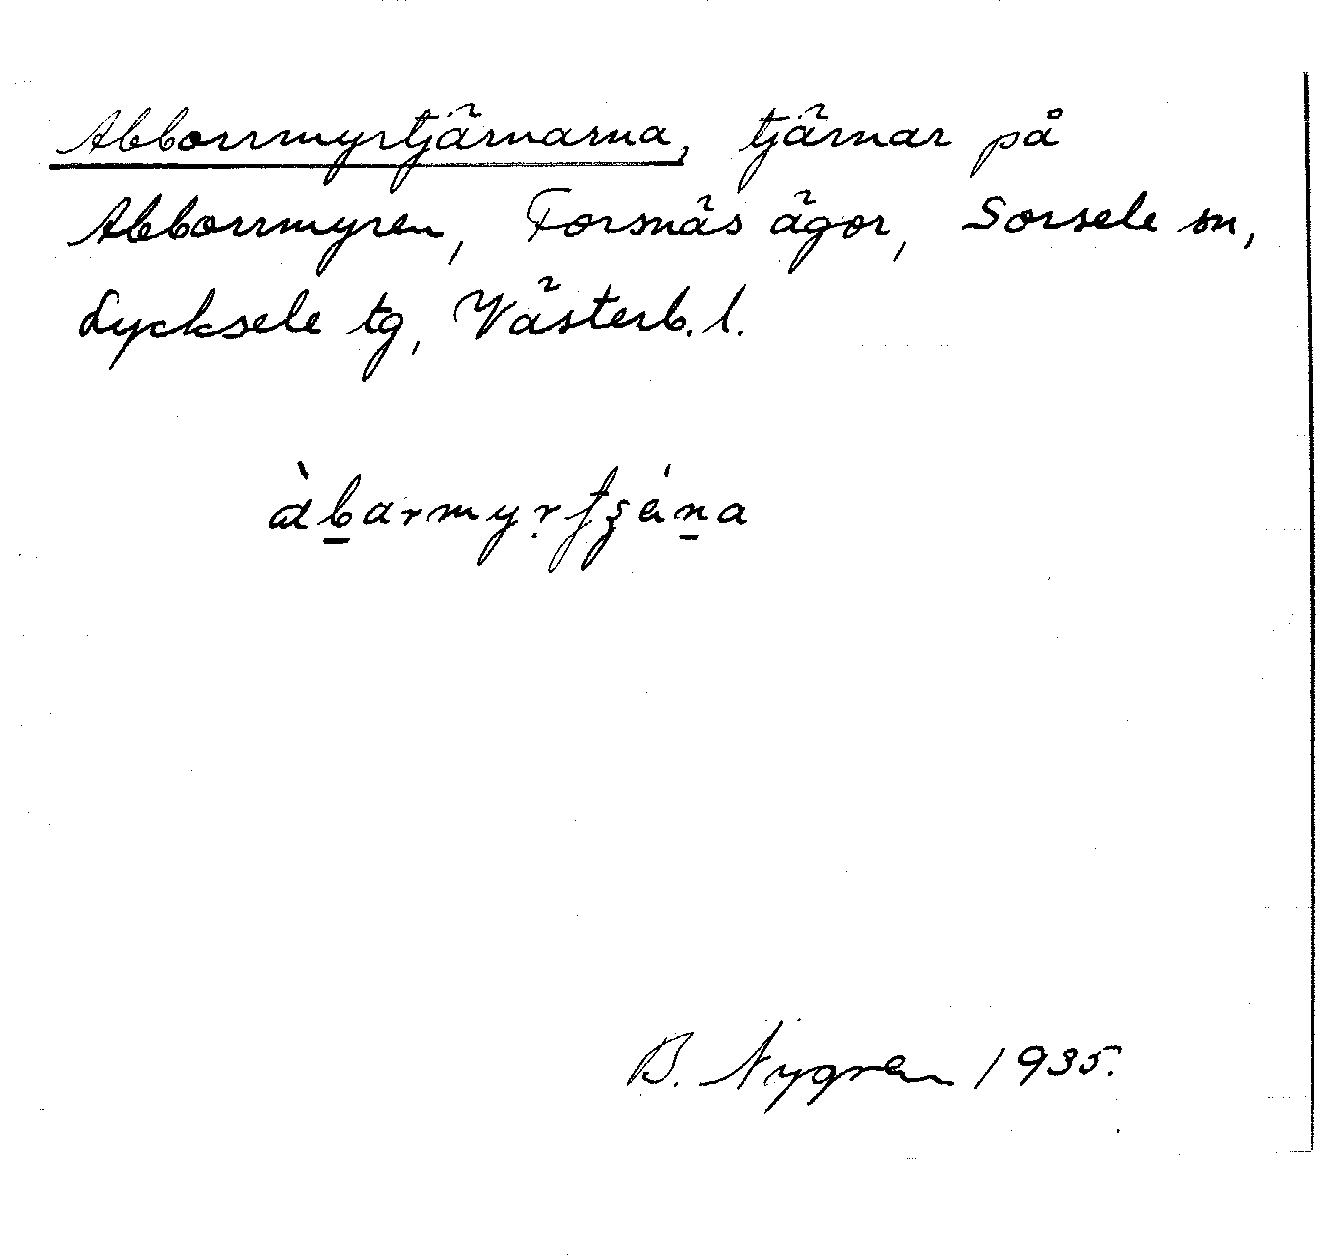 Abborrmyrtjärnarna, tjärnar på
Abborrmyren, Forsnäs ägor, Sorsele sn,
Lycksele tg, Västerb. l.
B. Nygren 1935.